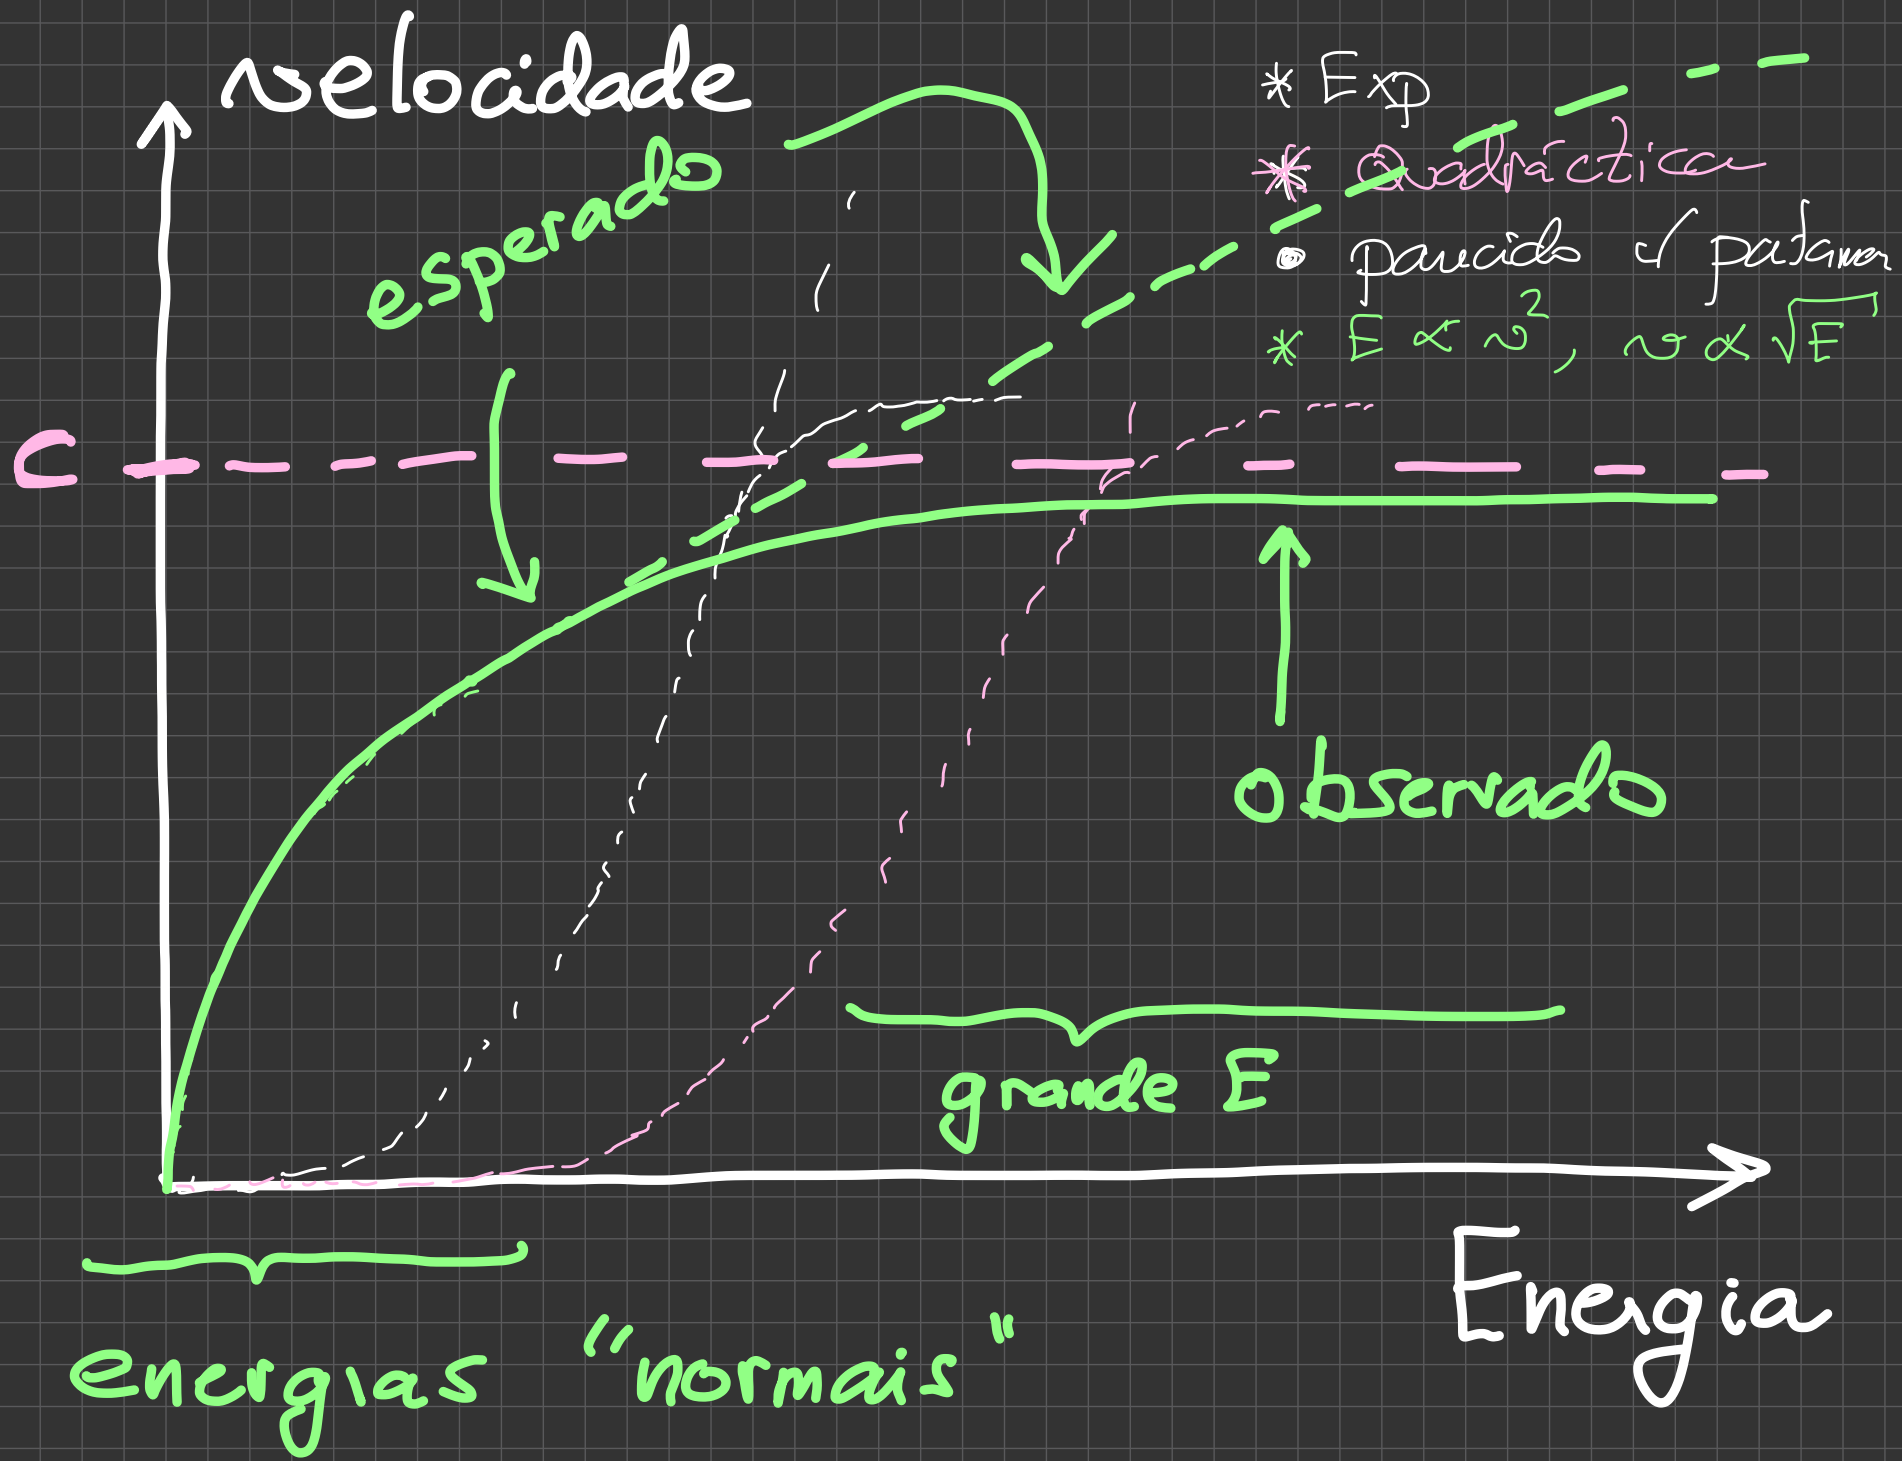 velocidade
* Exp
* Quadráctica
• parecido c/ patamar
* E ∝ v², v ∝ √E
esperado
C
observado
grande E
Energia
energias "normais"